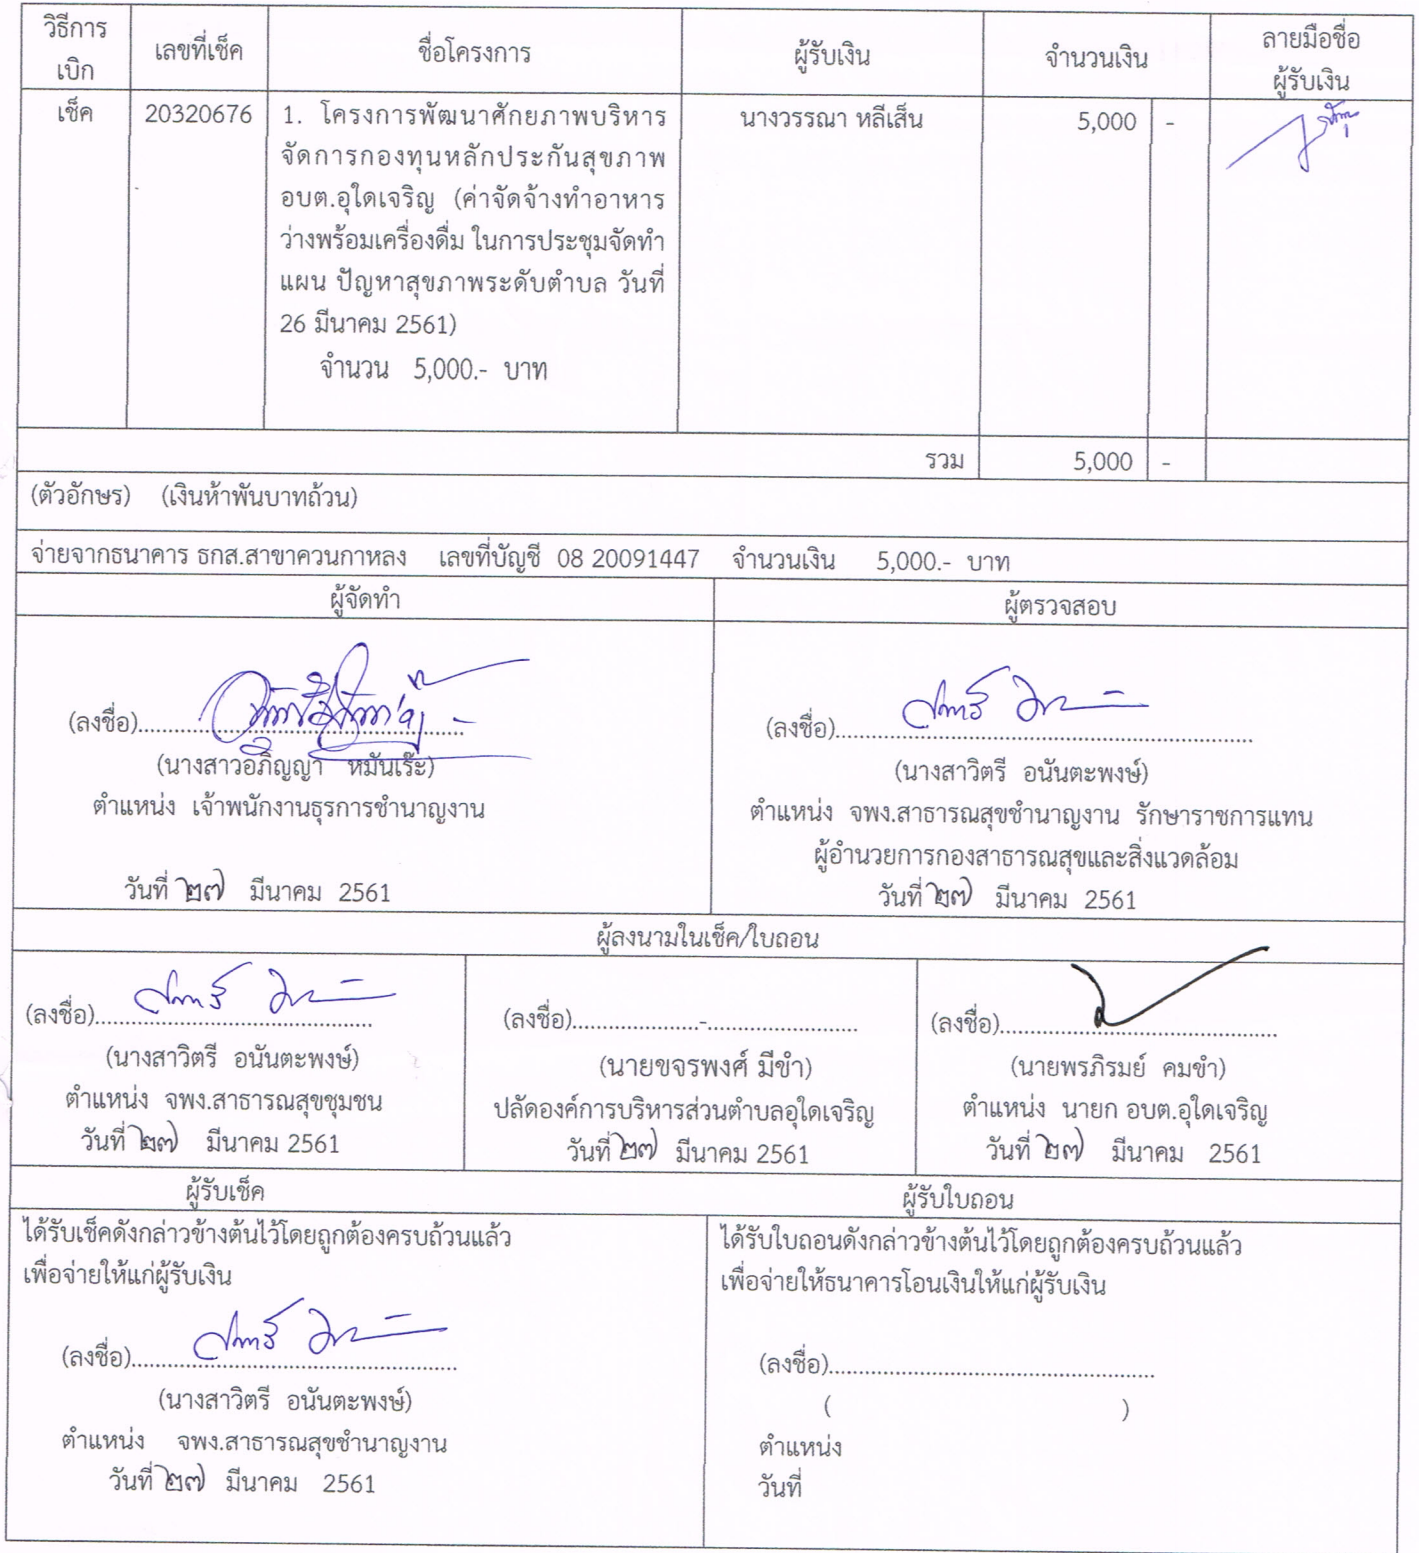 วิธีการ
เบิก
เลขที่เช็ค
ชื่อโครงการ
ผู้รับเงิน
จำนวนเงิน
ลายมือชื่อ
ผู้รับเงิน
เช็ค 20320676 1. โครงการพัฒนาศักยภาพบริหาร นางวรรณา หลีเส็น 5,000 -
จัดการกองทุนหลักประกันสุขภาพ
อบต.อุใดเจริญ (ค่าจัดจ้างทำอาหาร
ว่างพร้อมเครื่องดื่ม ในการประชุมจัดทำ
แผน ปัญหาสุขภาพระดับตำบล วันที่
26 มีนาคม 2561)
จำนวน 5,000.- บาท
รวม 5,000 -
(ตัวอักษร) (เงินห้าพันบาทถ้วน)
จ่ายจากธนาคาร ธกส.สาขาควนกาหลง เลขที่บัญชี 08 20091447 จำนวนเงิน 5,000.- บาท
ผู้จัดทำ
(ลงชื่อ)................................................
(นางสาวอภิญญา หมันเร๊ะ)
ตำแหน่ง เจ้าพนักงานธุรการชำนาญงาน
วันที่ ๒๗ มีนาคม 2561
ผู้ตรวจสอบ
(ลงชื่อ)................................................
(นางสาวิตรี อนันตะพงษ์)
ตำแหน่ง จพง.สาธารณสุขชำนาญงาน รักษาราชการแทน
ผู้อำนวยการกองสาธารณสุขและสิ่งแวดล้อม
วันที่ ๒๗ มีนาคม 2561
ผู้ลงนามในเช็ค/ใบถอน
(ลงชื่อ)................................................
(นางสาวิตรี อนันตะพงษ์)
ตำแหน่ง จพง.สาธารณสุขชุมชน
วันที่ ๒๗ มีนาคม 2561
(ลงชื่อ)....................-.......................
(นายขจรพงศ์ มีขำ)
ปลัดองค์การบริหารส่วนตำบลอุใดเจริญ
วันที่ ๒๗ มีนาคม 2561
(ลงชื่อ)................................................
(นายพรภิรมย์ คมขำ)
ตำแหน่ง นายก อบต.อุใดเจริญ
วันที่ ๒๗ มีนาคม 2561
ผู้รับเช็ค
ได้รับเช็คดังกล่าวข้างต้นไว้โดยถูกต้องครบถ้วนแล้ว
เพื่อจ่ายให้แก่ผู้รับเงิน
(ลงชื่อ)................................................
(นางสาวิตรี อนันตะพงษ์)
ตำแหน่ง จพง.สาธารณสุขชำนาญงาน
วันที่ ๒๗ มีนาคม 2561
ผู้รับใบถอน
ได้รับใบถอนดังกล่าวข้างต้นไว้โดยถูกต้องครบถ้วนแล้ว
เพื่อจ่ายให้ธนาคารโอนเงินให้แก่ผู้รับเงิน
(ลงชื่อ)................................................
( )
ตำแหน่ง
วันที่